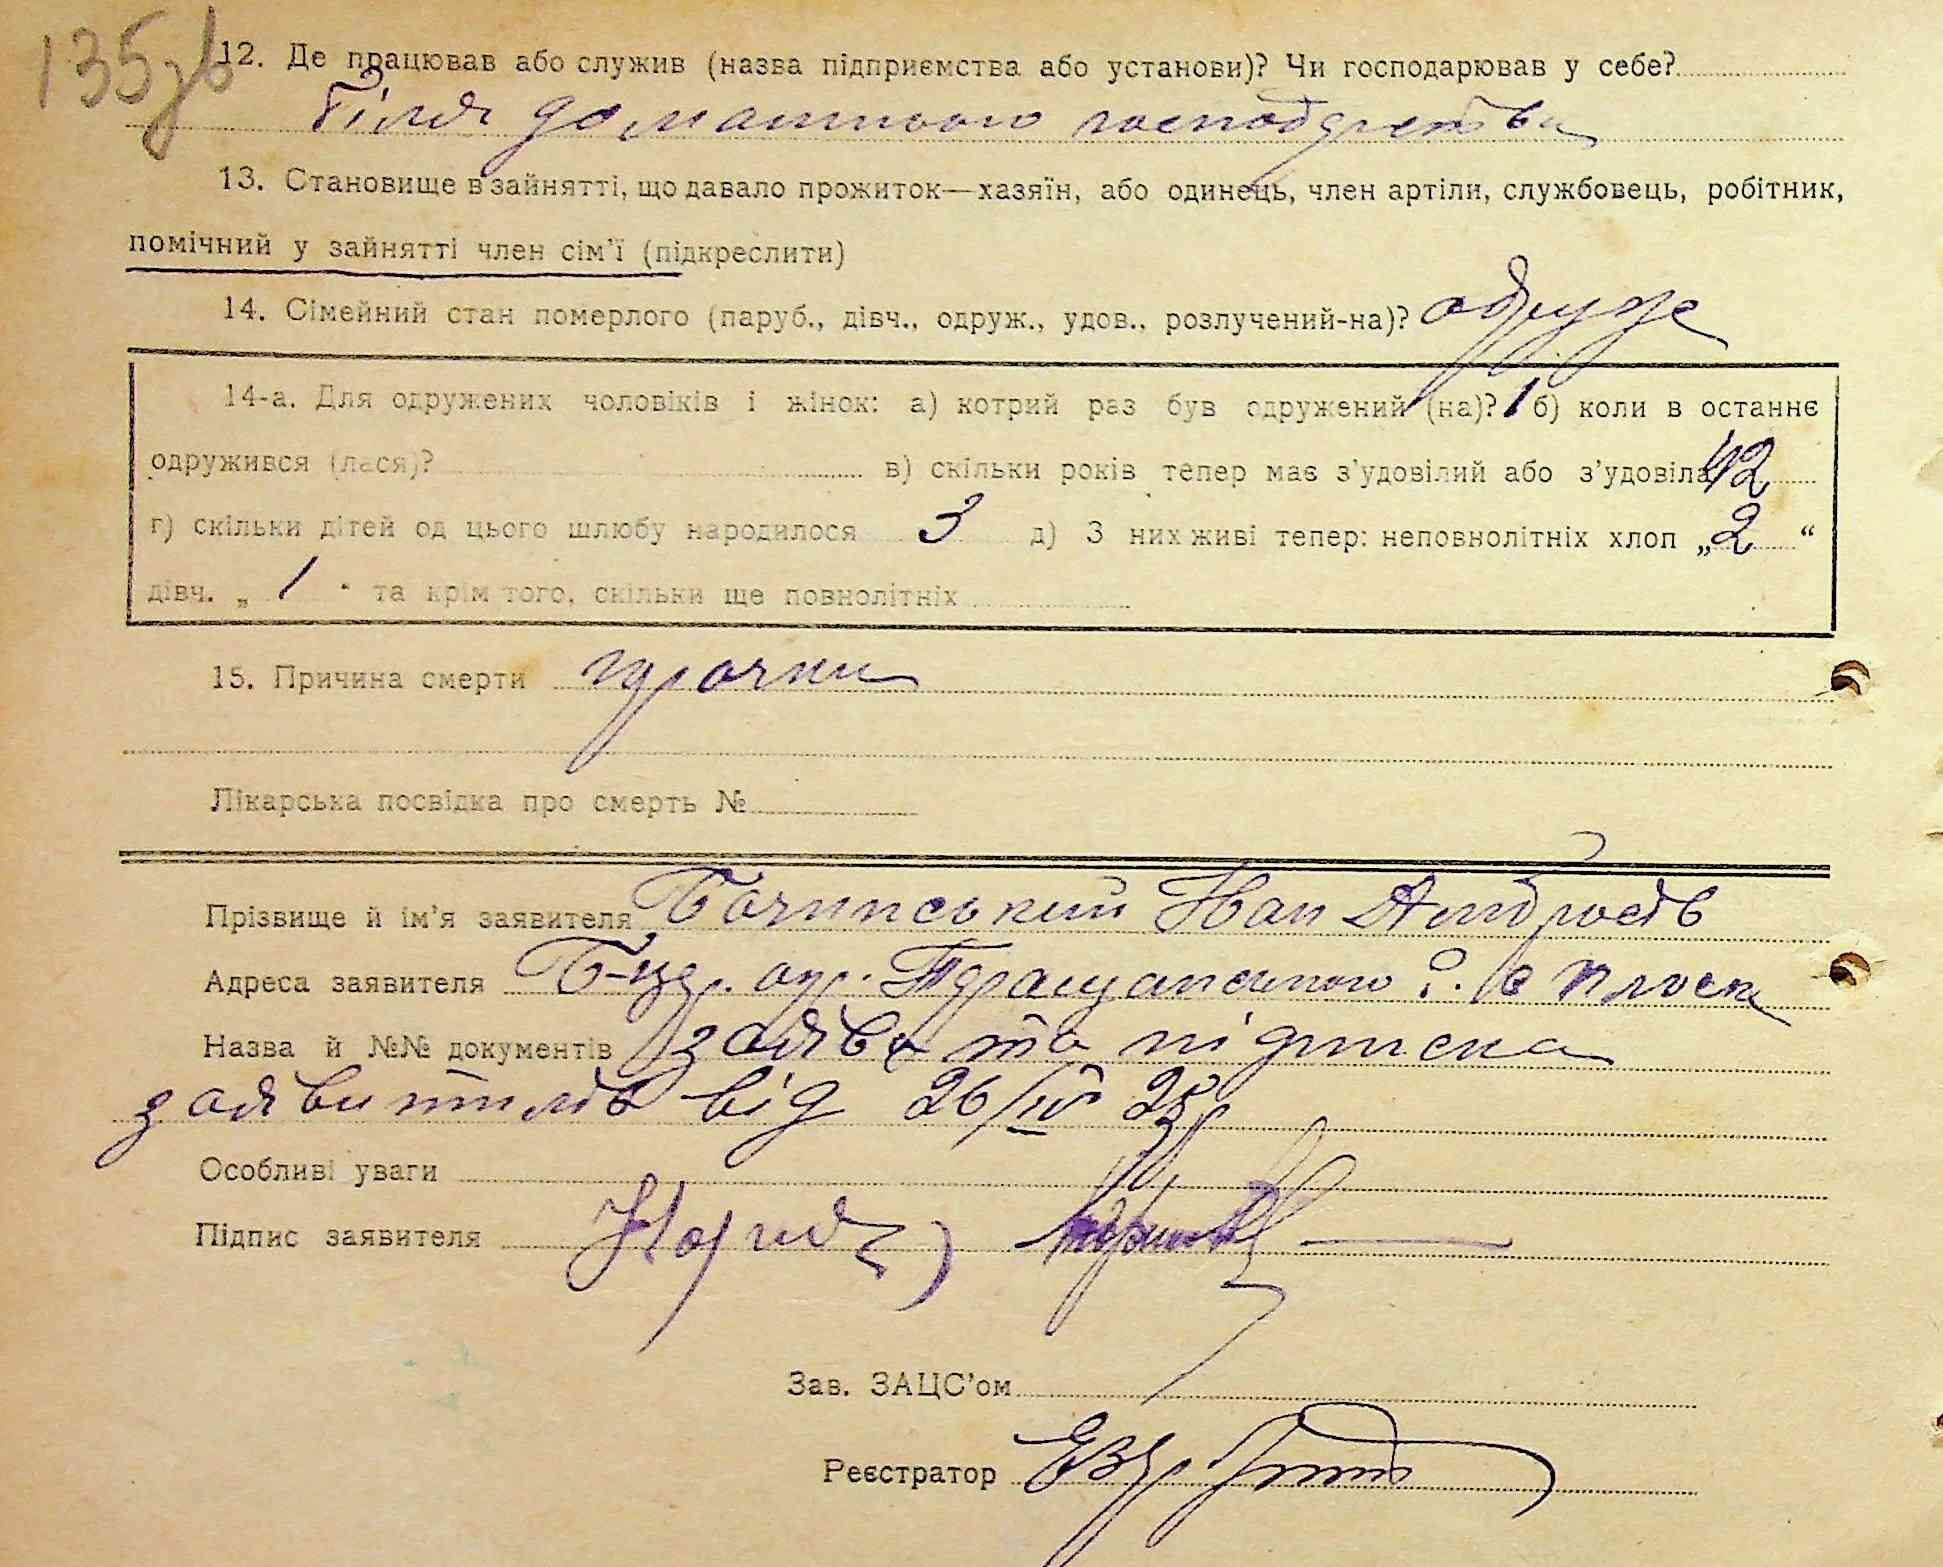 135 зв
12. Де працював або служив (назва підприємства або установи)? Чи господарював у себе?
Біля домашнього господарства
13. Становище в зайнятті, що давало прожиток—хазяїн, або одинець, член артіли, службовець, робітник,
помічний у зайнятті член сім'ї (підкреслити)
14. Сімейний стан померлого (паруб., дівч., одруж., удов., розлучений-на)? одруже
14-а. Для одружених чоловіків і жінок: а) котрий раз був одружений (на)? 1 б) коли в останнє
одружився (лася)? в) скільки років тепер має з'удовілий або з'удовіла 42
г) скільки дітей од цього шлюбу народилося 3 д) З них живі тепер: неповнолітніх хлоп „2“
дівч. „ 1 " та крім того, скільки ще повнолітніх
15. Причина смерти
Лікарська посвідка про смерть №
Прізвище й ім'я заявителя Бочинський Іван
Адреса заявителя Б-Цер. окр. с Плоск
Назва й №№ документів заява та підписка
заявителя від 26/IV
Особливі уваги
Підпис заявителя
Зав. ЗАЦС'ом
Реєстратор